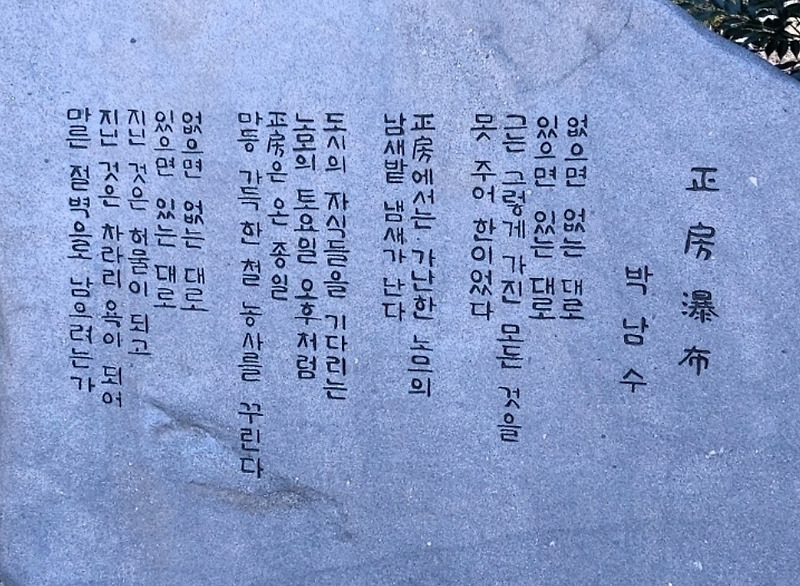 正房瀑布
박남수
없으면 없는 대로
있으면 있는 대로
그는 그렇게 가진 모든 것을
못 주어 한이었다
正房에서는 가난한 노모의
남새밭 냄새가 난다
도시의 자식들을 기다리는
노모의 토요일 오후처럼
正房은 온 종일
마등 가득 한 철 농사를 꾸린다
없으면 없는 대로
있으면 있는 대로
지닌 것은 허물이 되고
지닌 것은 차라리 욕이 되어
마른 절벽으로 남으려는가